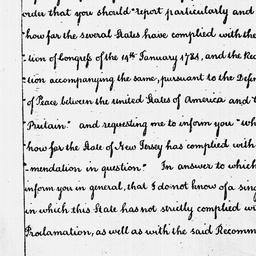 order that you should "report particularly and
"how far the several States have complied with the
"tion of Congress of the 14th January 1784, and the Rec
"tion accompanying the same, pursuant to the Defin
"of Peace between the united States of America and
"Britain." and requesting me to inform you "wh
"how far the State of New Jersey has complied with
"-mendation in question." In answer to which
inform you in general, that I do not know of a sing
in which this State has not strictly complied wi
Proclamation, as well as with the said Recomm